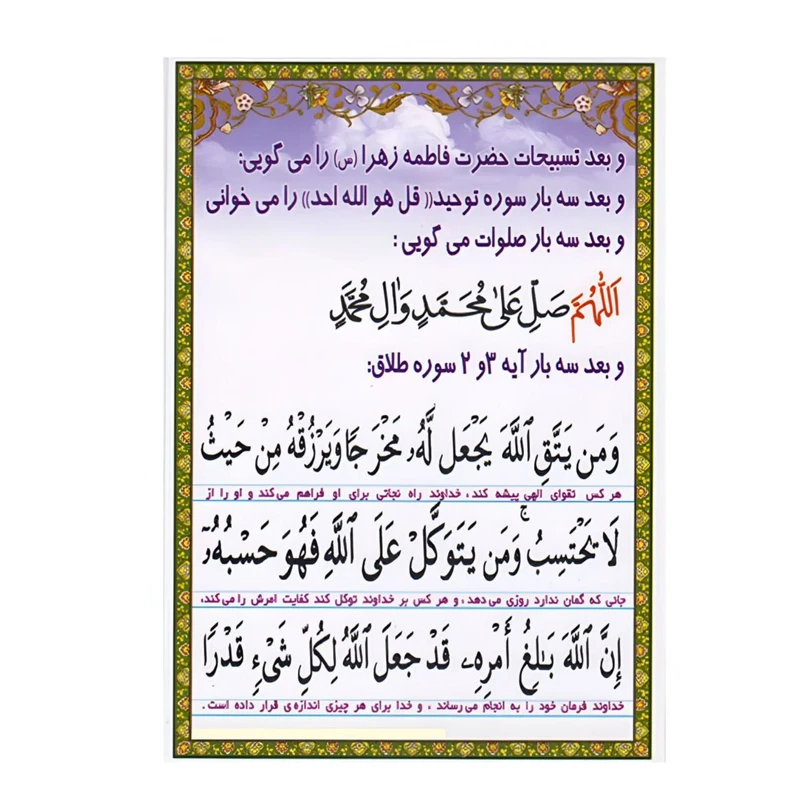 و بعد تسبیحات حضرت فاطمه زهرا (س) را می گویی:
و بعد سه بار سوره توحید(( قل هو الله احد)) را می خوانی
و بعد سه بار صلوات می گویی :
اَللّٰهُمَّ صَلِّ عَلیٰ مُحَمَّدٍ وَالِ مُحَمَّدٍ
و بعد سه بار آیه ۳و ۲ سوره طلاق:
وَمَن يَتَّقِ ٱللَّهَ يَجْعَل لَّهُۥ مَخْرَجًا وَيَرْزُقْهُ مِنْ حَيْثُ
هر کس تقوای الهی پیشه کند، خداوند راه نجاتی برای او فراهم می‌کند و او را از
لَا يَحْتَسِبُ ۚ وَمَن يَتَوَكَّلْ عَلَى ٱللَّهِ فَهُوَ حَسْبُهُۥٓ
جائی که گمان ندارد روزی می‌دهد، و هر کس بر خداوند توکل کند کفایت امرش را می‌کند،
إِنَّ ٱللَّهَ بَـٰلِغُ أَمْرِهِۦ قَدْ جَعَلَ ٱللَّهُ لِكُلِّ شَىْءٍ قَدْرًا
خداوند فرمان خود را به انجام می‌رساند ، و خدا برای هر چیزی اندازه‌ی قرار داده است.